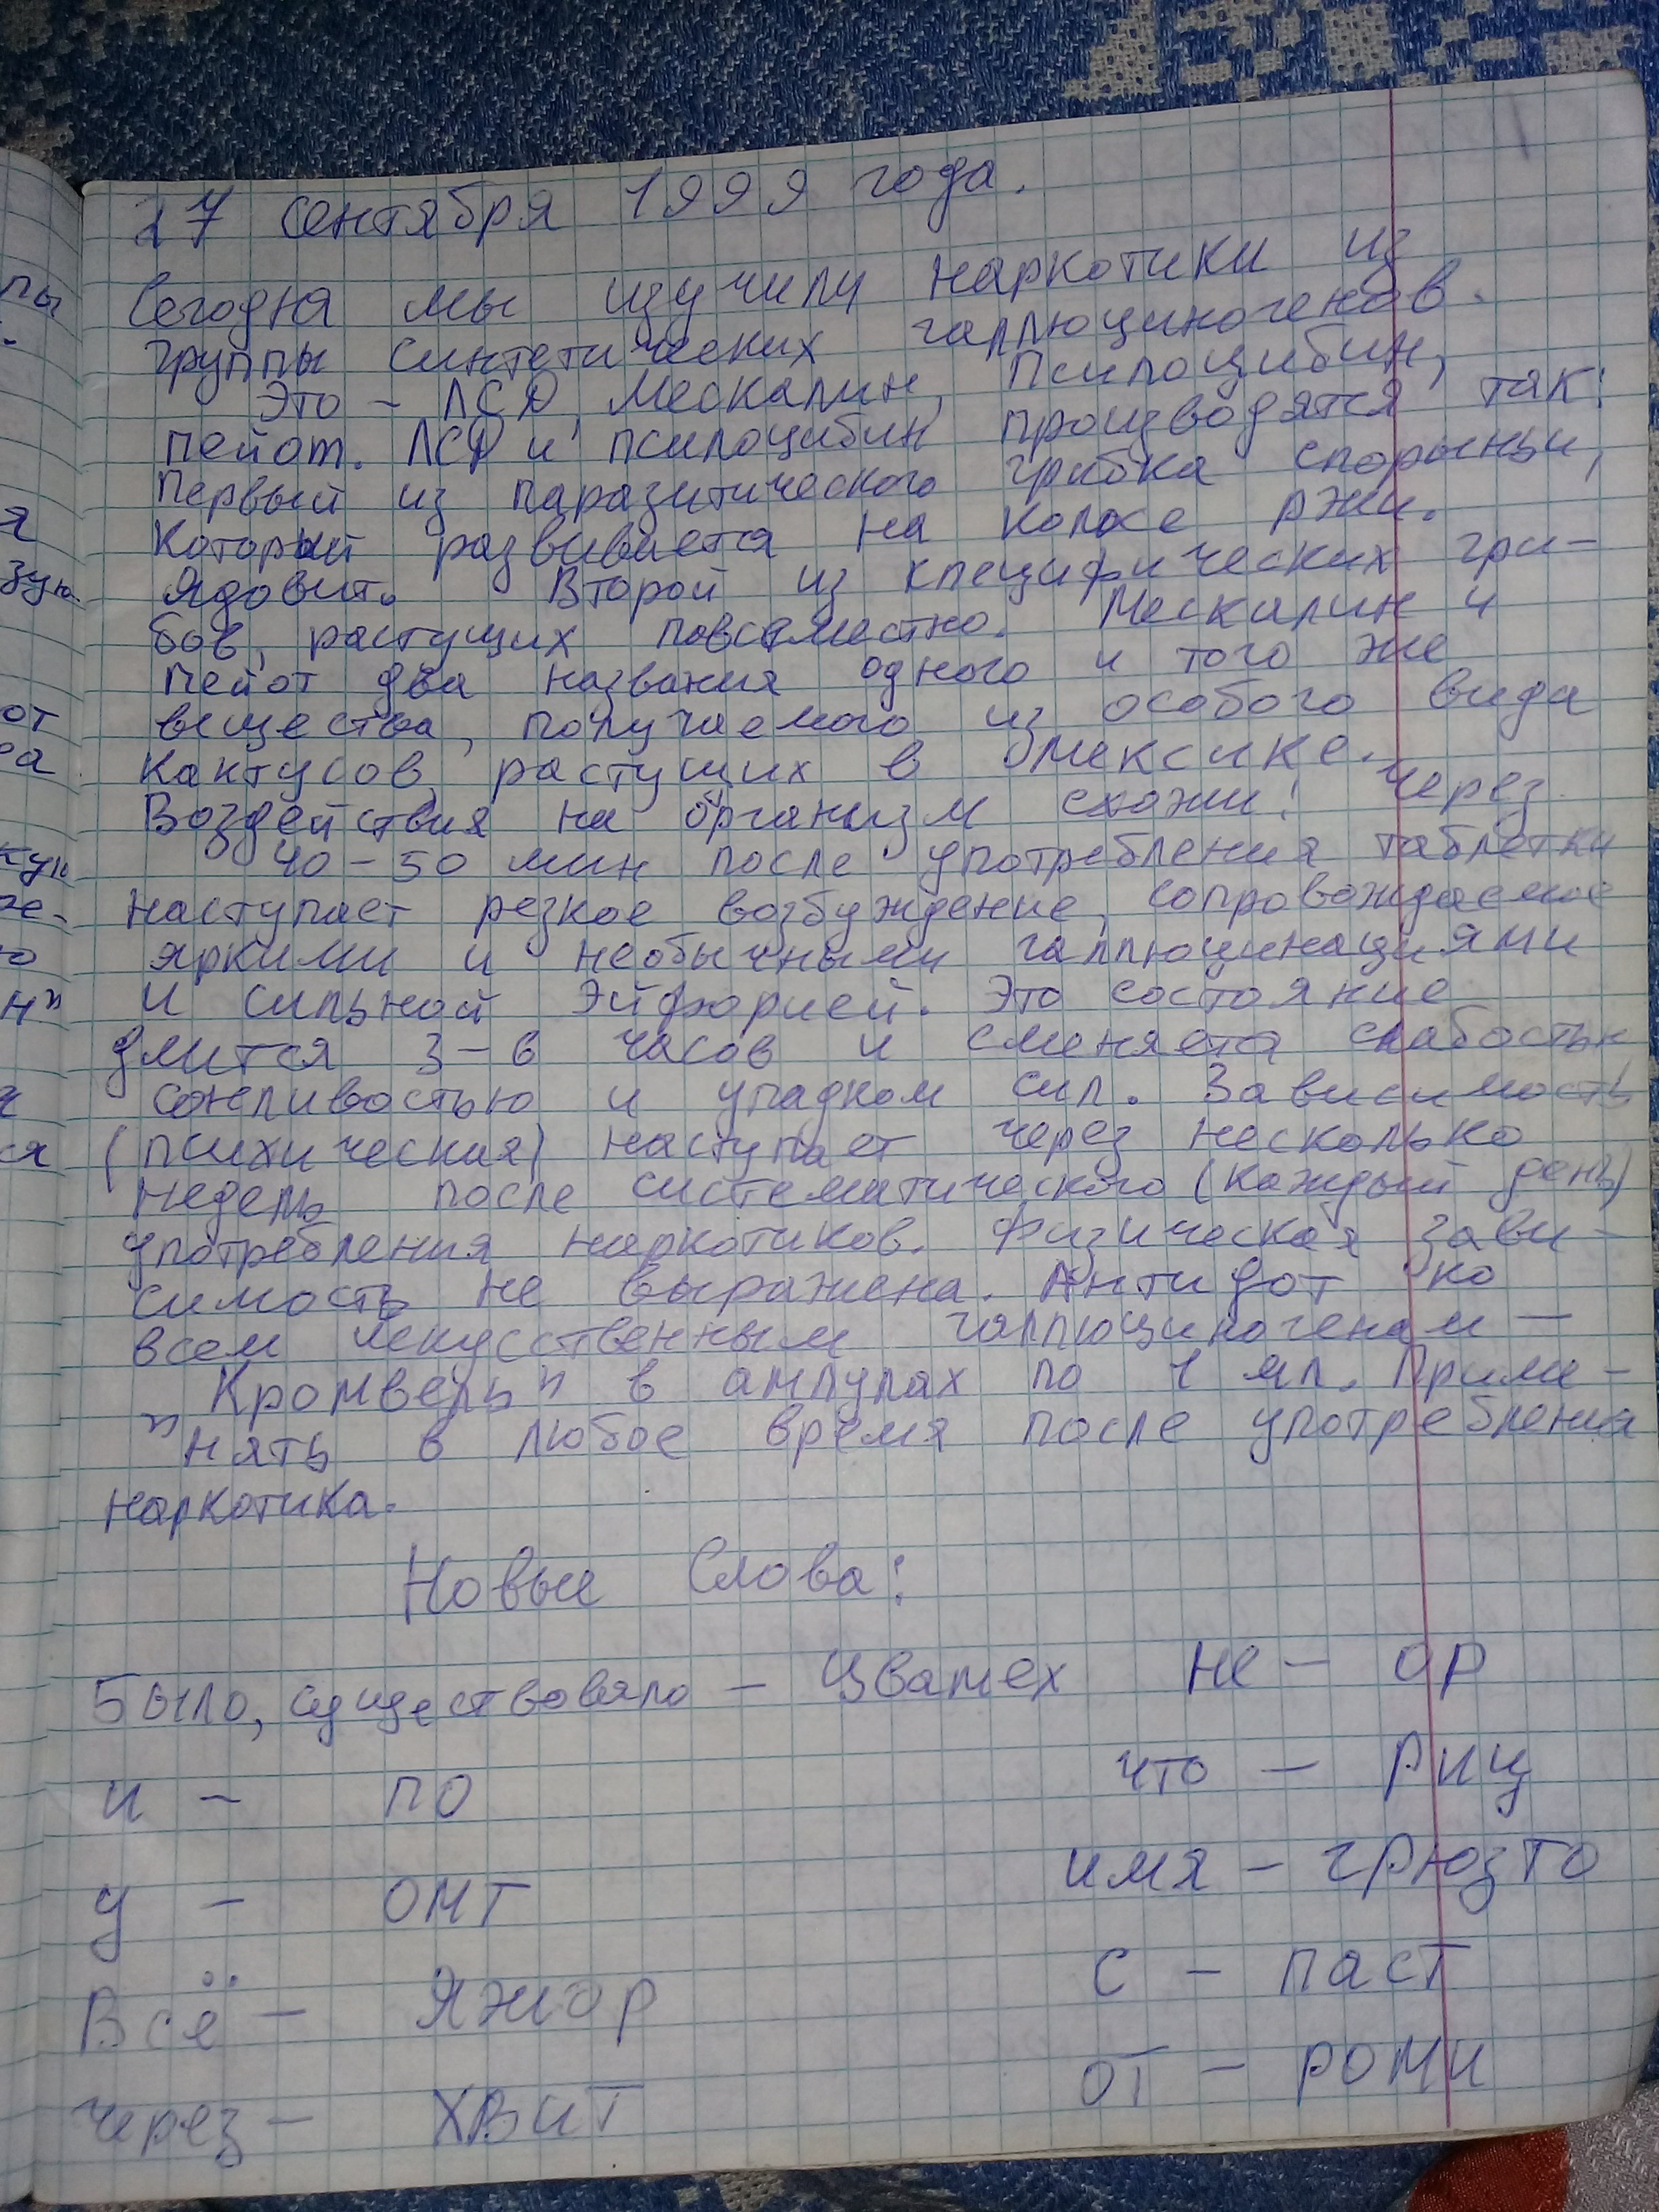 27 сентября 1999 года.
Сегодня мы изучили наркотики из
группы синтетических галлюциногенов.
Это - ЛСД, Мескалин, Псилоцибин,
пейот. ЛСД и псилоцибин производятся так:
Первый из паразитического грибка спорыньи,
который развивается на колосе ржи.
Ядовит. Второй из специфических гри-
бов, растущих повсеместно. Мескалин и
пейот два названия одного и того же
вещества, получаемого из особого вида
кактусов, растущих в Мексике.
Воздействия на организм схожи: Через
40-50 мин после употребления таблетки
наступает резкое возбуждение, сопровождаемое
яркими и необычными галлюцинациями
и сильной эйфорией. Это состояние
длится 3-6 часов и сменяется слабостью
сонливостью и упадком сил. Зависимость
(психическая) наступает через несколько
недель после систематического (каждый день)
употребления наркотиков. Физическая зави-
симость не выражена. Антидот ко
всем искусственным галлюциногенам -
"Кромвель" в ампулах по 1 мл. Приме-
нять в любое время после употребления
наркотика.
Новые Слова:
Было, существовало - Цватех не - ор
и - по что - риц
у - омт имя - грюзто
Всё - яжор с - паст
через - хвит от - роми